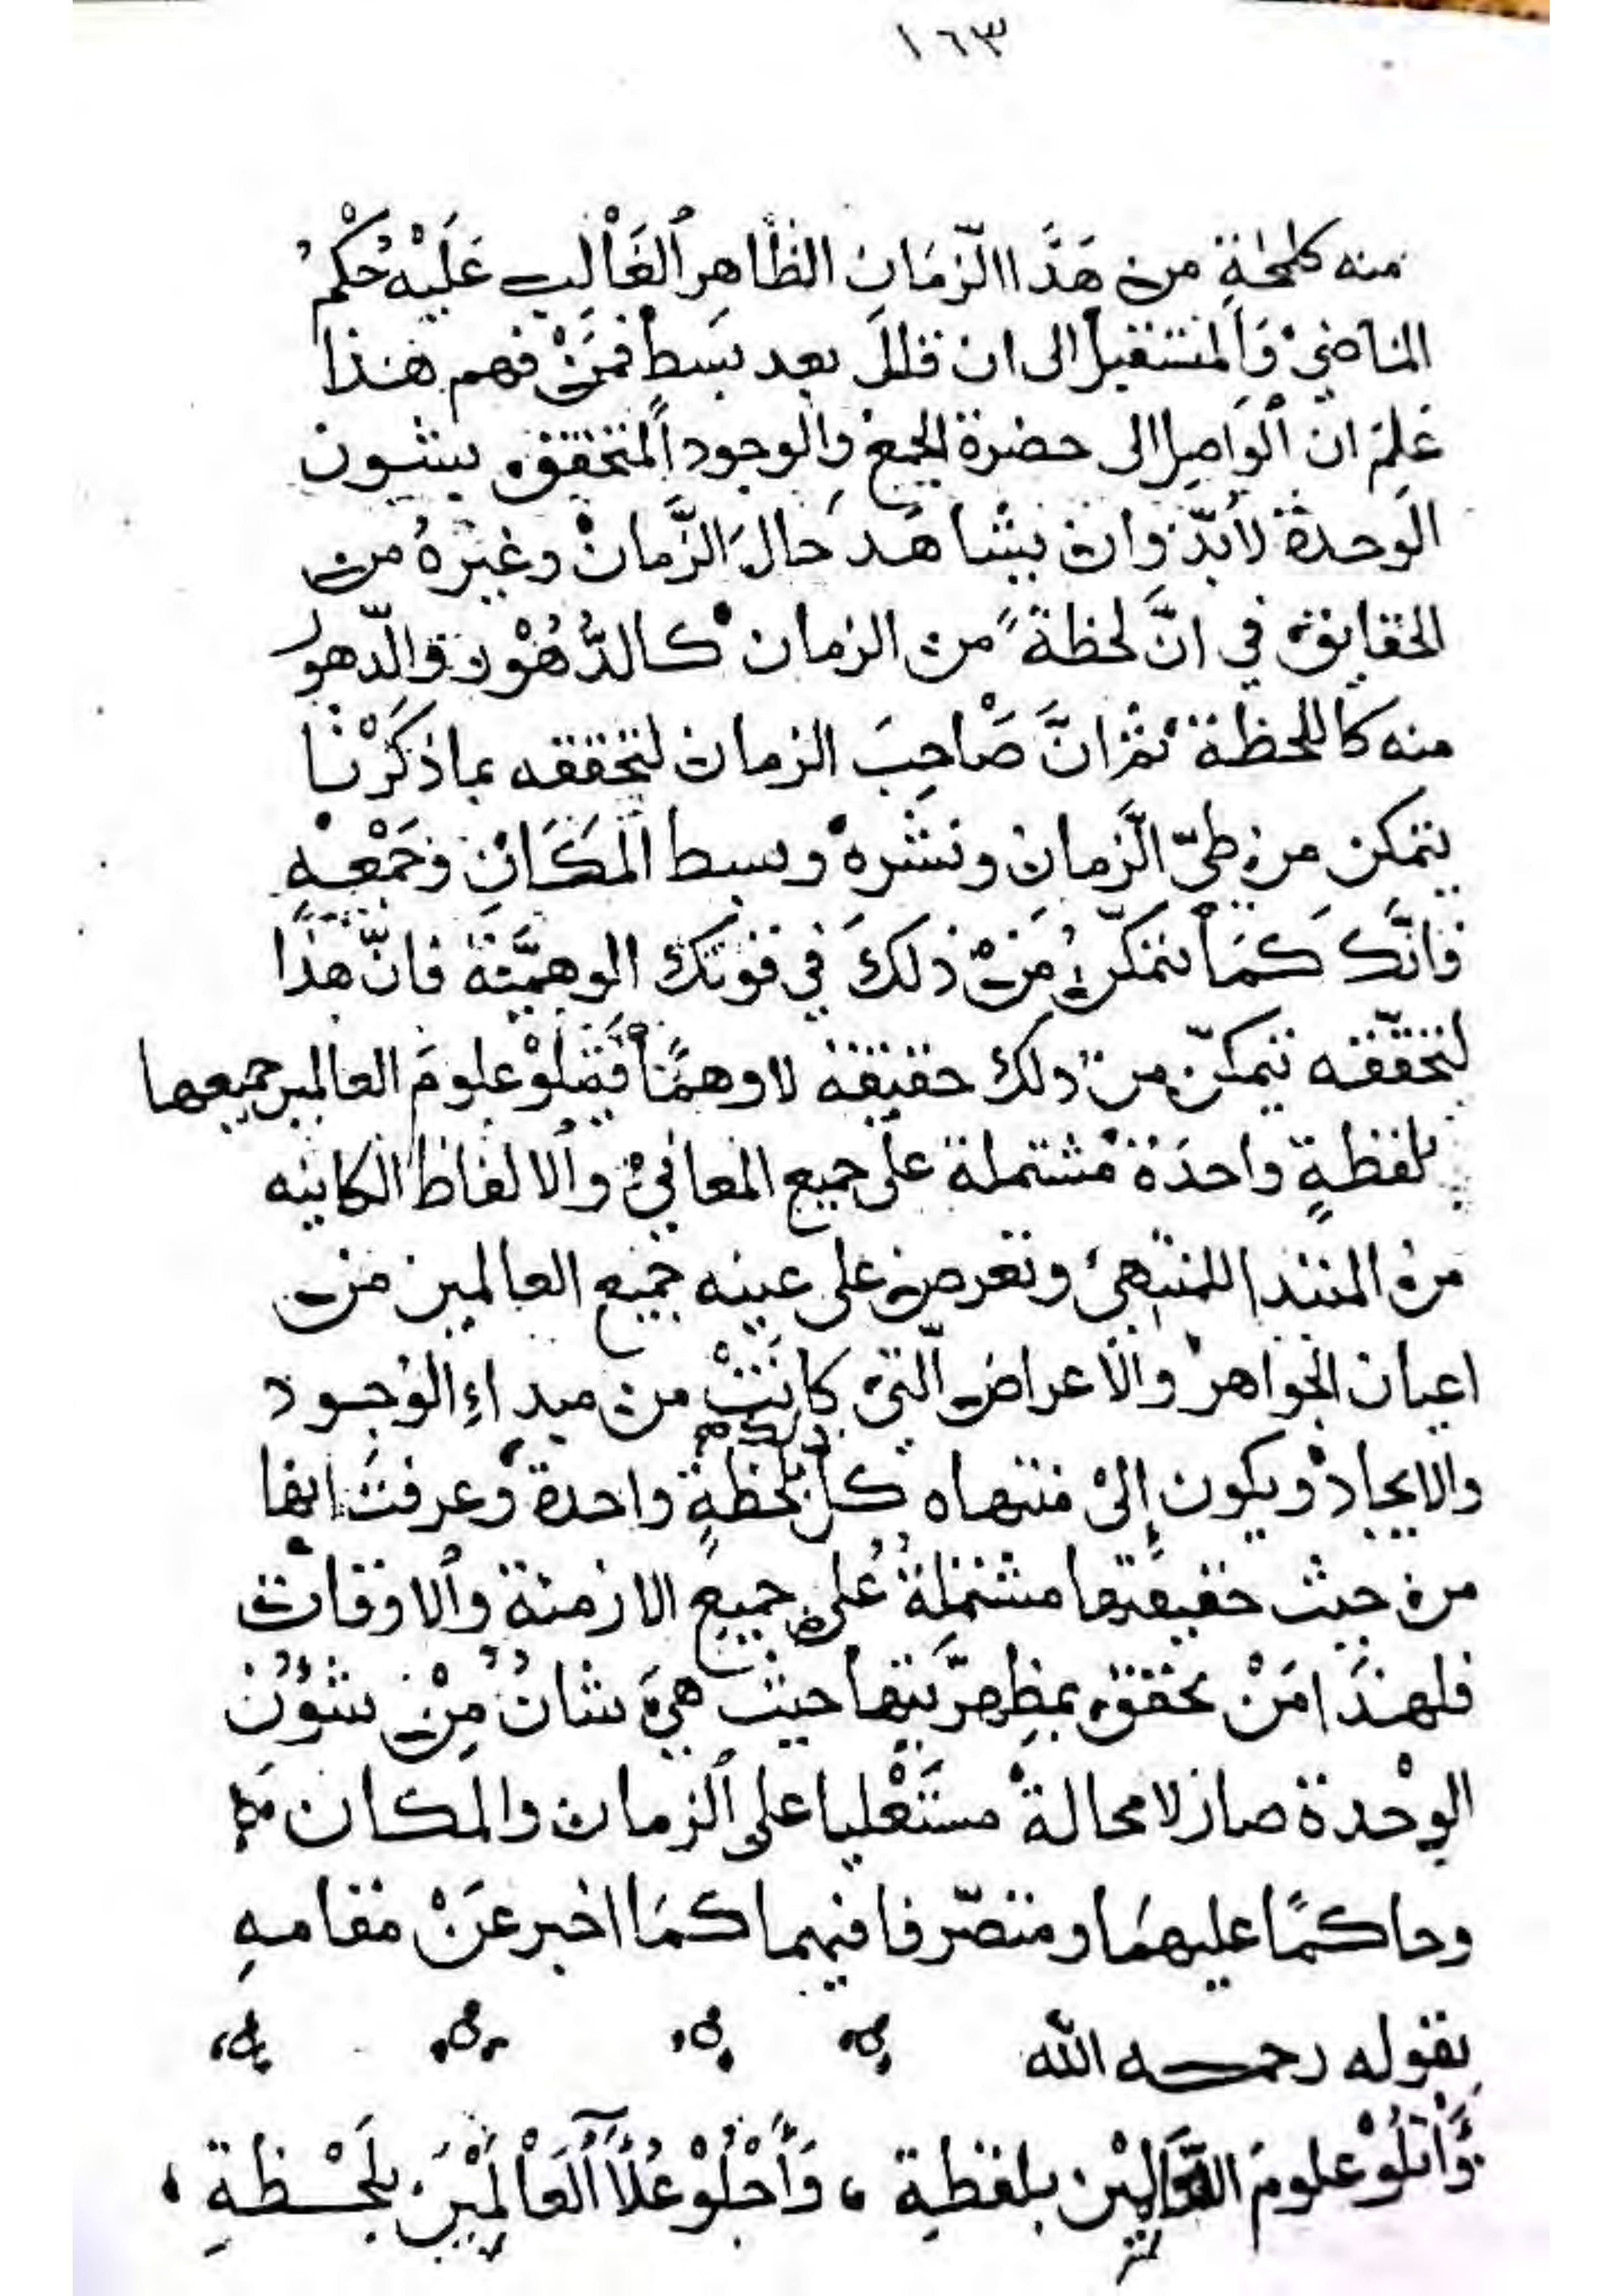 ١٦٣
منه كلمحةٍ من هَذَا الزّمَانِ الظَّاهِرِ الغَالِبِ عَلَيْه حُكْمُ
الماضيْ وَالمستقبل الى ان قلل بعد بسطٍ فمَنْ فهم هذا
عَلِمَ ان الوَاصِل الى حضرة الجمع والوجود المتحقق بشون
الوحدة لابُدّ وان يشاهَد حَالَ الزَّمانْ وغيْرهُ من
الحقايق في انَّ لحظةً من الزمان كالدُّهُوْر والدّهور
منه كاللحظة ثم انَّ صَاحِبَ الزمان لتحققه بما ذكَرْنا
يتمكن من طيّ الزَّمانِ ونشره وبسط المكَانِ وَجَمْعِهِ
فانَّك كمَا تتمكّنُ مَنْ ذلكَ في قوتك الوهميَّة فانّ هذا
لتحقّقه يتمكّن من ذلك حقيقة لا وهمًا فَيتلوْ علومَ العالمين جميعها
بلفظةٍ واحدَة مشتملة على جميع المعانيْ والالفاظ الكاينه
من المبتدا للمنتهىْ وتعرض على عينه جميع العالمين من
اعيان الجواهر والاعراض الّتي كانَتْ من مبداءِ الوجود
والايجادْ ويكون إلىْ منتهاه كل ذلك بلحظةٍ واحدة وعرفتَ انها
من حيث حقيقتها مشتملةُ على جميع الازمنة والاوقات
فلهذا مَنْ تحقق بمظهرّيتها حيث هيَ شانُ مِنْ شؤُن
الوحْدة صار لا محالة مستَعْليا على الزمان والمكان
وحاكمًا عليهمَا ومتصرّفا فيهما كمَا اخبر عَنْ مقامهِ
بقوله رحمه الله
وَأتلُوْ علومَ العَالمِيْن بلفظةِ ، وَأجْلُوْ عَلَيَّ العَالَمِيْنَ بلَحْظةِ ،